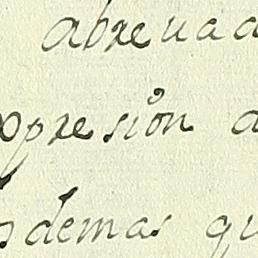 abreuad
opresión a
sdemas qu